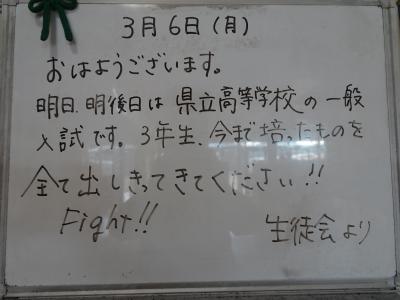 3月6日(月)
おはようございます。
明日、明後日は県立高等学校の一般
入試です。3年生、今まで培ったものを
全て出しきってきてください!!
Fight!!
生徒会より